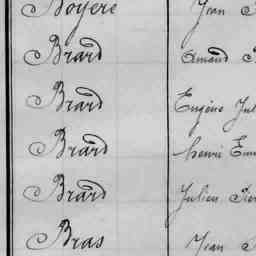 Boyere Jean
Brard Amand
Brard Eugène Jul
Brard henri Em
Brard Julien
Bras Jean